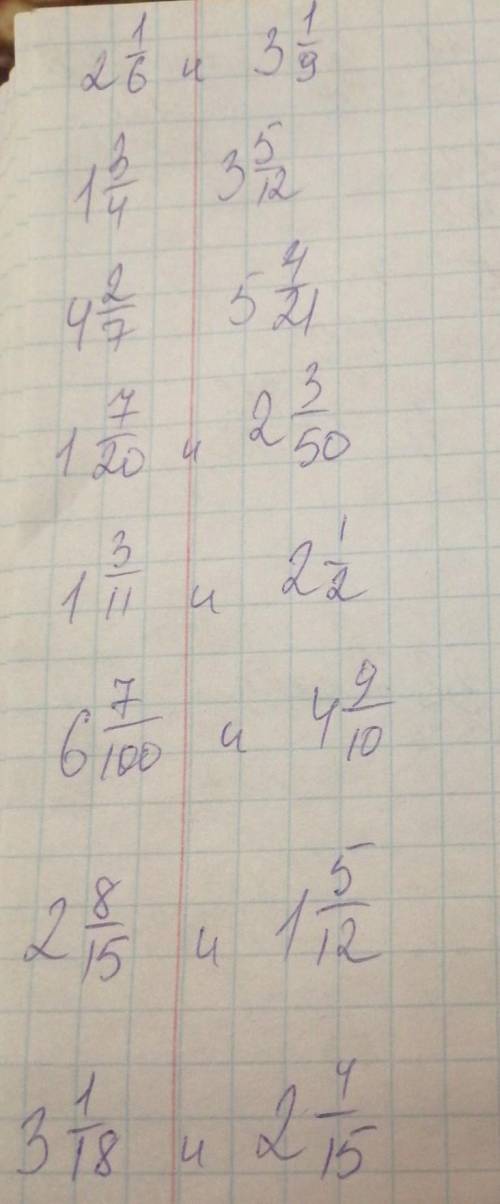 2 1/6 и 3 1/9
1 3/4 3 5/12
4 2/7 5 4/21
1 7/20 и 2 3/50
1 3/11 и 2 1/2
6 7/100 и 4 9/10
2 8/15 и 1 5/12
3 1/18 и 2 4/15